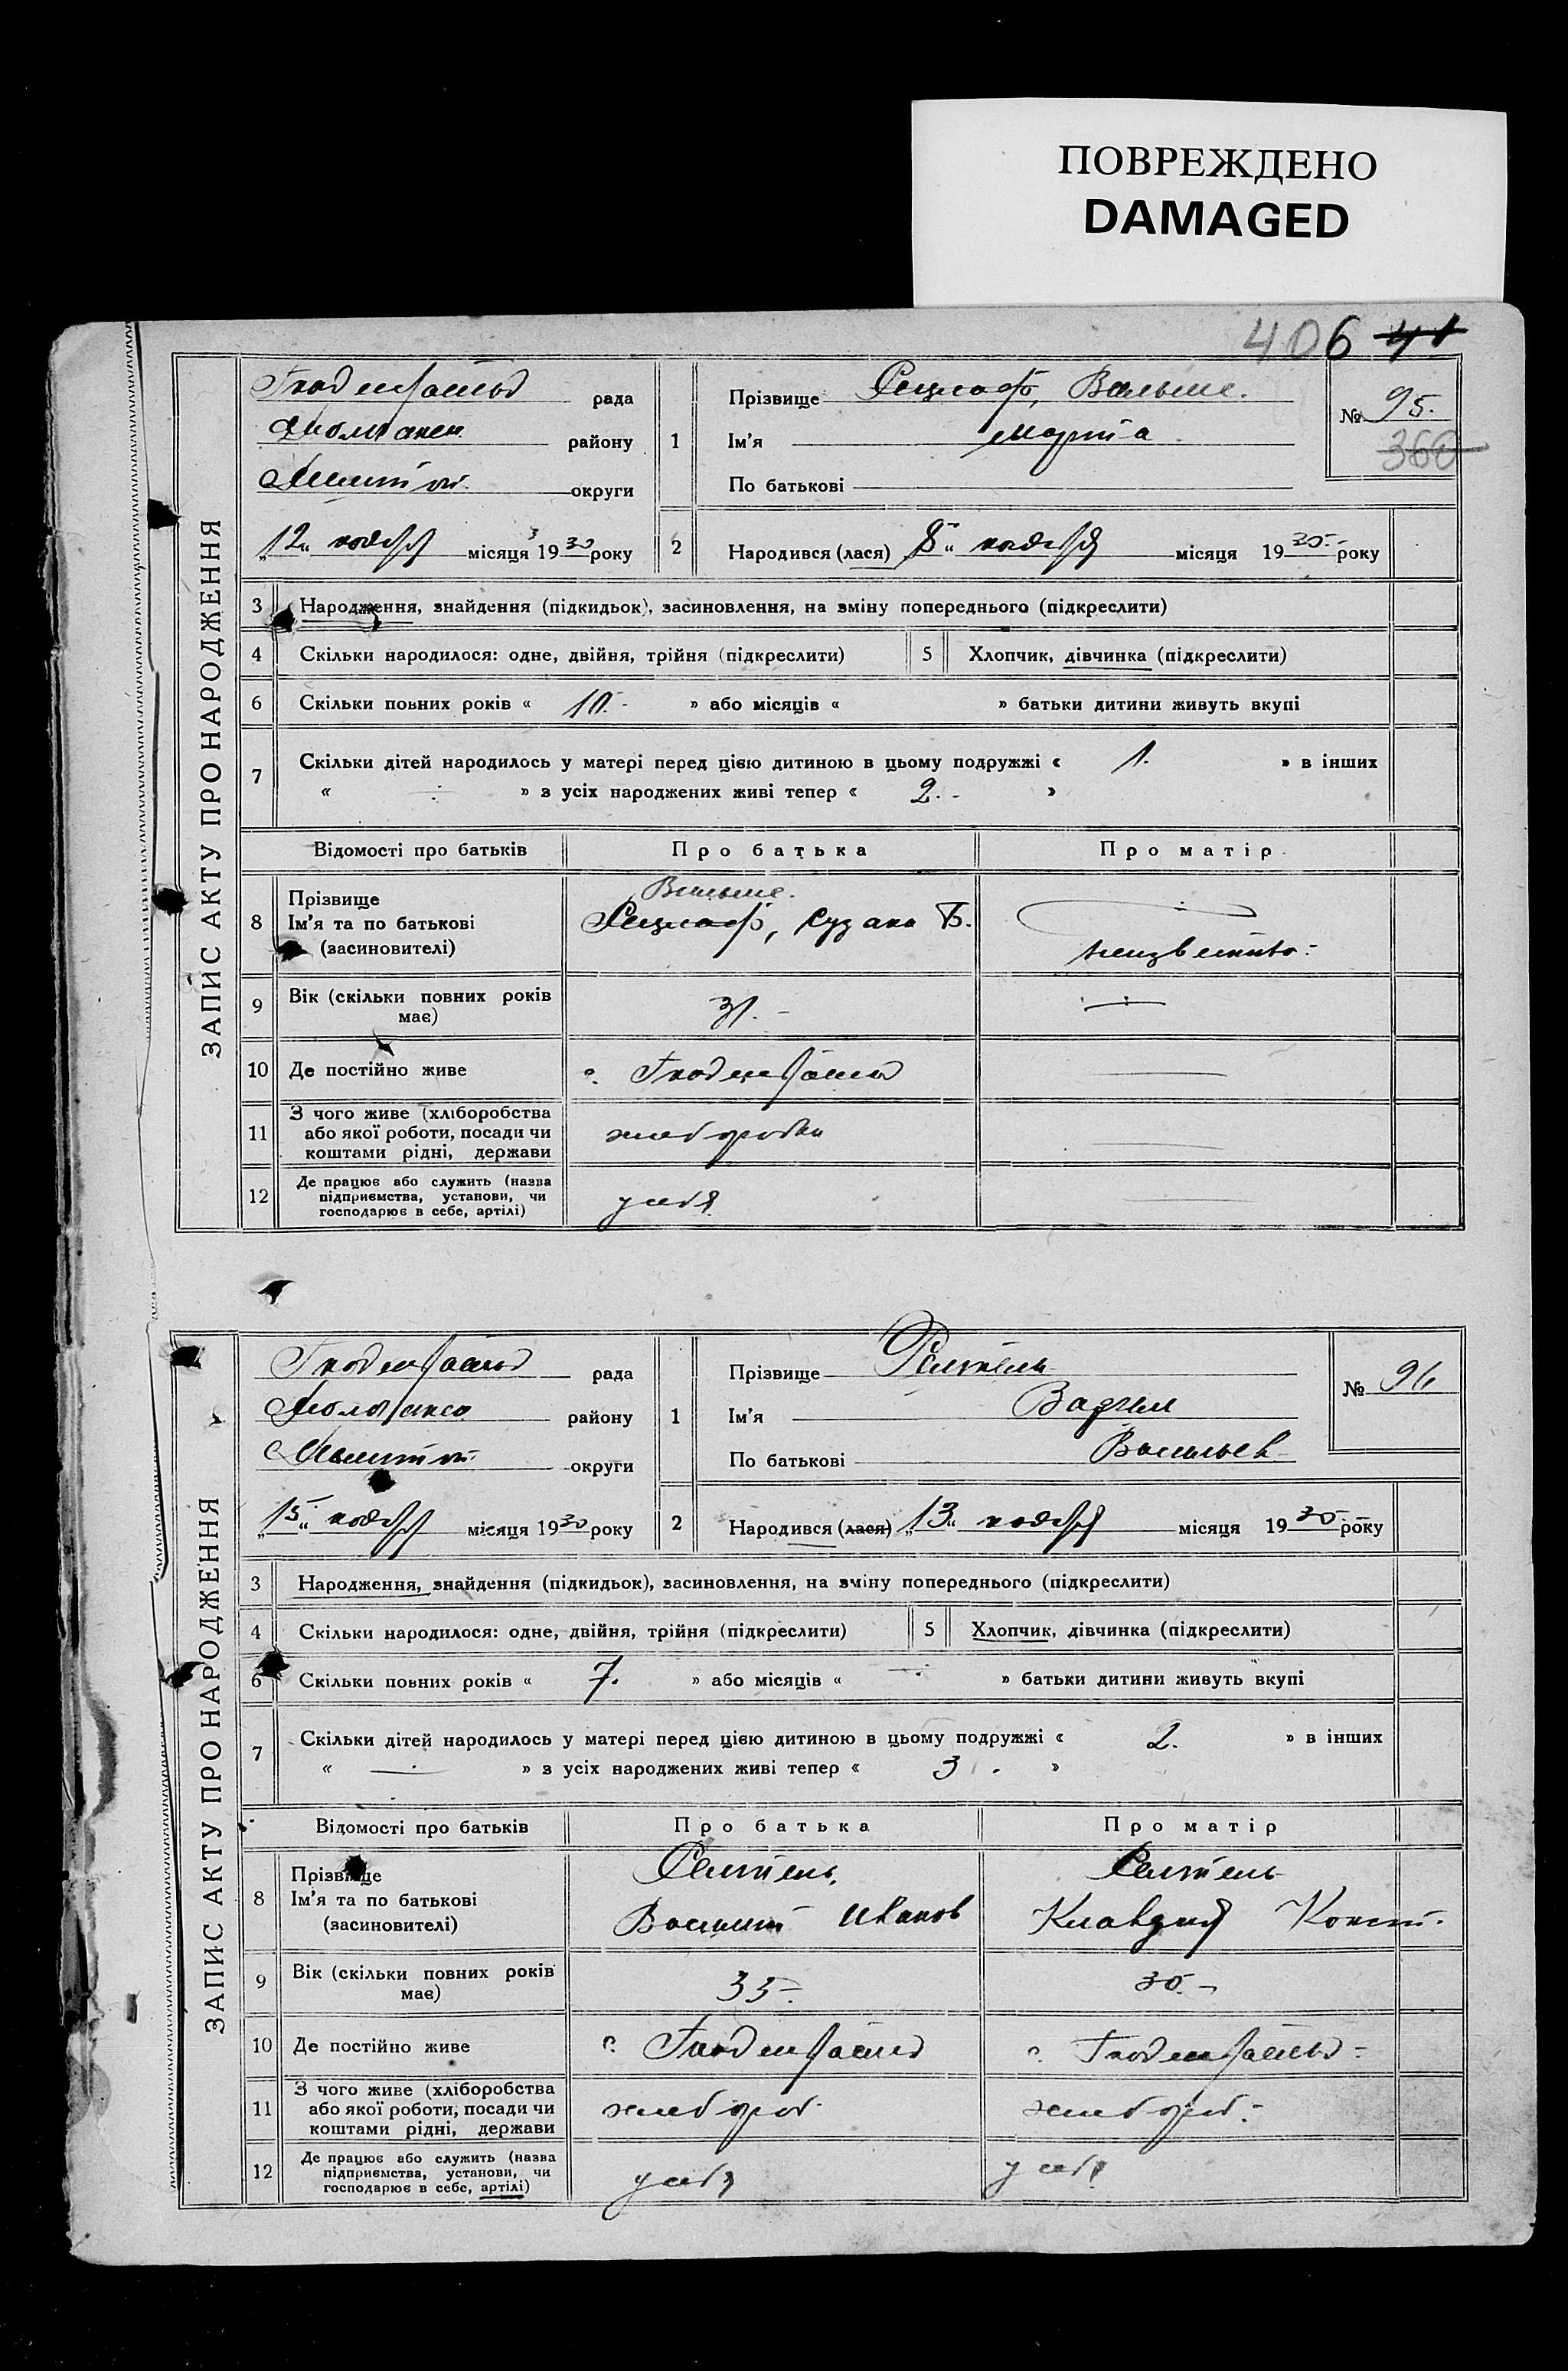 ПОВРЕЖДЕНО
DAMAGED
406 41
ЗАПИС АКТУ ПРО НАРОДЖЕННЯ
Гнаденфельд рада
району
округи
„12“ ноября місяця 1930 року
1
Прізвище Вильмс.
Ім'я Марта
По батькові
№ 95.
360
2 Народився (лася) „8“ ноября місяця 1930 року
3 Народження, знайдення (підкидьок), засиновлення, на зміну попереднього (підкреслити)
4 Скільки народилося: одне, двійня, трійня (підкреслити) 5 Хлопчик, дівчинка (підкреслити)
6 Скільки повних років « 10. » або місяців « » батьки дитини живуть вкупі
7 Скільки дітей народилось у матері перед цією дитиною в цьому подружжі « 1. » в інших
« » з усіх народжених живі тепер « 2. »
Відомості про батьків Про батька Про матір
8 Прізвище
Ім'я та по батькові
(засиновителі)
Вильмс.
Сузана Б.
неизвестно
9 Вік (скільки повних років має) 31.
10 Де постійно живе с. Гнаденфельд
11 З чого живе (хліборобства або якої роботи, посади чи коштами рідні, держави хлебороб
12 Де працює або служить (назва підприємства, установи, чи господарює в себе, артілі) у себя
ЗАПИС АКТУ ПРО НАРОДЖЕННЯ
Гнаденфельд рада
району
округи
„15“ ноября місяця 1930 року
1
Прізвище
Ім'я Вадим
По батькові Васильев
№ 96
2 Народився (лася) „13“ ноября місяця 1930 року
3 Народження, знайдення (підкидьок), засиновлення, на зміну попереднього (підкреслити)
4 Скільки народилося: одне, двійня, трійня (підкреслити) 5 Хлопчик, дівчинка (підкреслити)
6 Скільки повних років « 7. » або місяців « » батьки дитини живуть вкупі
7 Скільки дітей народилось у матері перед цією дитиною в цьому подружжі « 2. » в інших
« » з усіх народжених живі тепер « 3 »
Відомості про батьків Про батька Про матір
8 Прізвище
Ім'я та по батькові
(засиновителі)
Иванов
Клавдия Конст.
9 Вік (скільки повних років має) 35 30.
10 Де постійно живе с. Гнаденфельд с. Гнаденфельд
11 З чого живе (хліборобства або якої роботи, посади чи коштами рідні, держави хлебороб хлебороб.
12 Де працює або служить (назва підприємства, установи, чи господарює в себе, артілі) у себя у себя